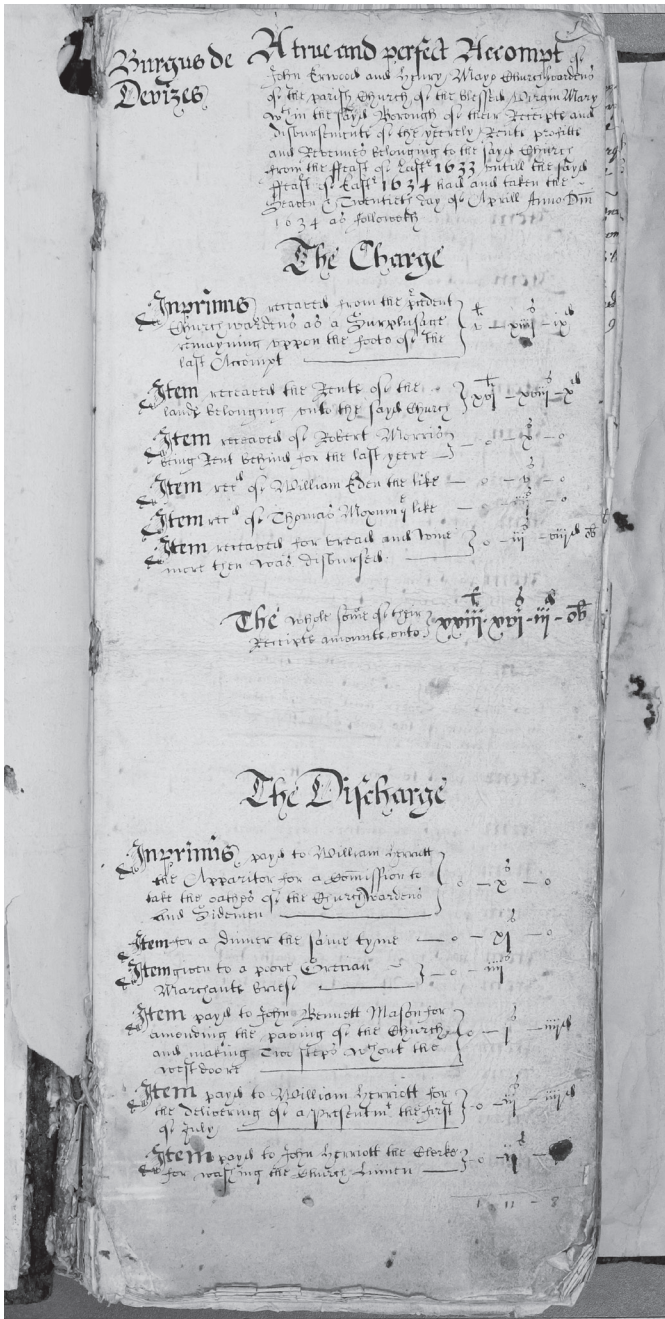 Burgus de
Devizes
A true and perfect Accompt of
John Erwood and Henry Mayo Churchwardens
of the parish Church of the blessed Virgin Mary
wthin the sayd Borough of their Receipts and
disbursements of the yeerely Rents profitts
and Revenues belonging to the sayd Church
from the ffeast of Eastr 1633 untill the sayd
ffeast of Eastr 1634 had and taken the
Seaven & Twentieth day of Aprill Anno Dm̄
1634 as followeth
The Charge
Inprimis receaved from the
Churchwardens as a Surplusage
remayning vppon the foote of the
last Accompt
Item receaved the Rents of the li s d
lands belonging vnto the sayd Church xvj – xviij – x
Item receaved of Robert Morris
being Rent behind for the last yeere o – x – o
Item recd of William Eden the like
Item recd of Thomas like
Item receaved for bread and wine
more then was disbursed
The whole some of their li s d
Receipts amounts vnto xviij – xvj – iij – ob
The Discharge
Inprimis payd to William Herriott
the Apparitor for a Com̄ission to
take the oathes of the Churchwardens
and Sidemen o – x – o
Item for a dinner the same tyme o – xj – o
Item given to a poore Grecian
Marchants Briefe o – iiij
Item payd to John Bennett Mason for
amending the paving of the Church
and making Two steps wthout the
west doore
Item payd to William Herriott for
the delivering of a presentmt the first
of July
Item payd to John Herriott the Clerke
for washing the Church Linnen
1 – 11 – 8